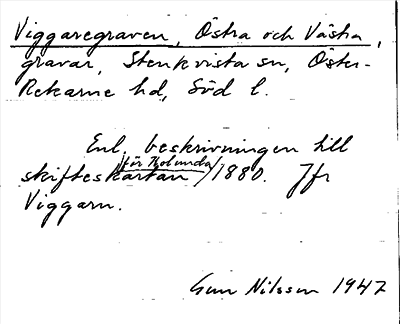 Viggaregraven, Östra och Västra,
gravar, Stenkvista sn, Öster-
Rekarne hd, Söd l.
Enl. beskrivningen till
skifteskartan /för Tolunda/ 1880. Jfr
Viggarn.
Gun Nilsson 1947